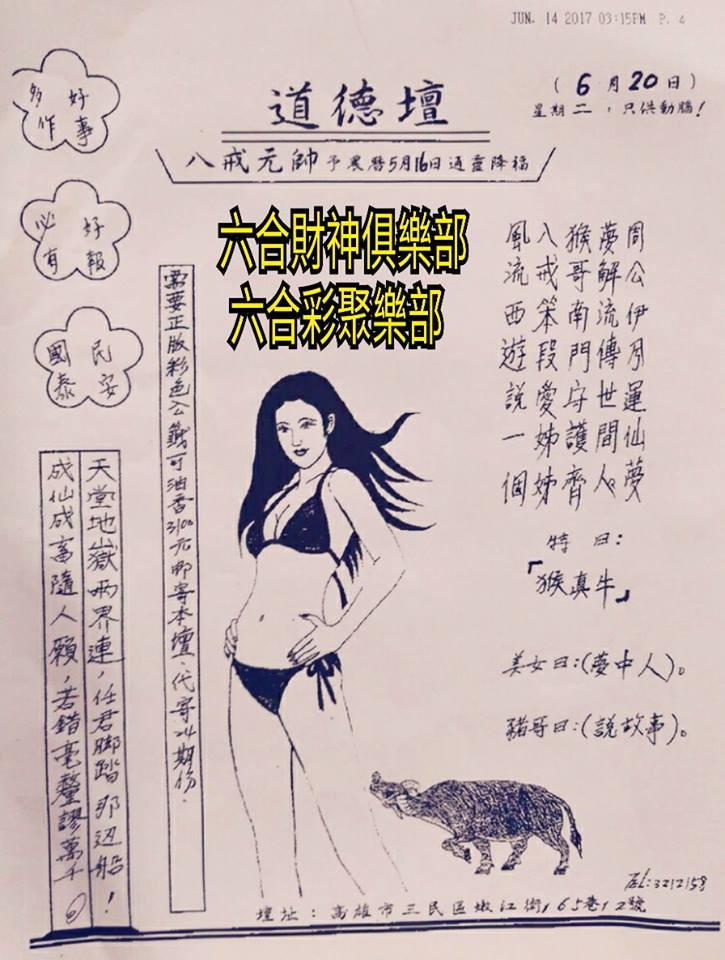 JUN. 14 2017 03:15PM P. 4
(6月20日)
星期二，只供動腦！
道德壇
八戒元帥予農曆5月16日通靈降福
好事
多作
好報
必有
民安
國泰
六合財神俱樂部
六合彩聚樂部
周公伊月運仙夢
夢解流傳世間人
猴哥南門守護齊
八戒笨段愛姊姊
風流西遊說一個
特曰：
「猴真牛」
美女曰：(夢中人)。
豬哥曰：(說故事)。
需要正版彩色公籤可油香3100元郵寄本壇，代寄24期份.
天堂地獄兩界連，任君腳踏那边船！
成仙成畜隨人願，若錯毫釐謬萬千
TEL:3212158
壇址：高雄市三民區嫩江街165巷12號